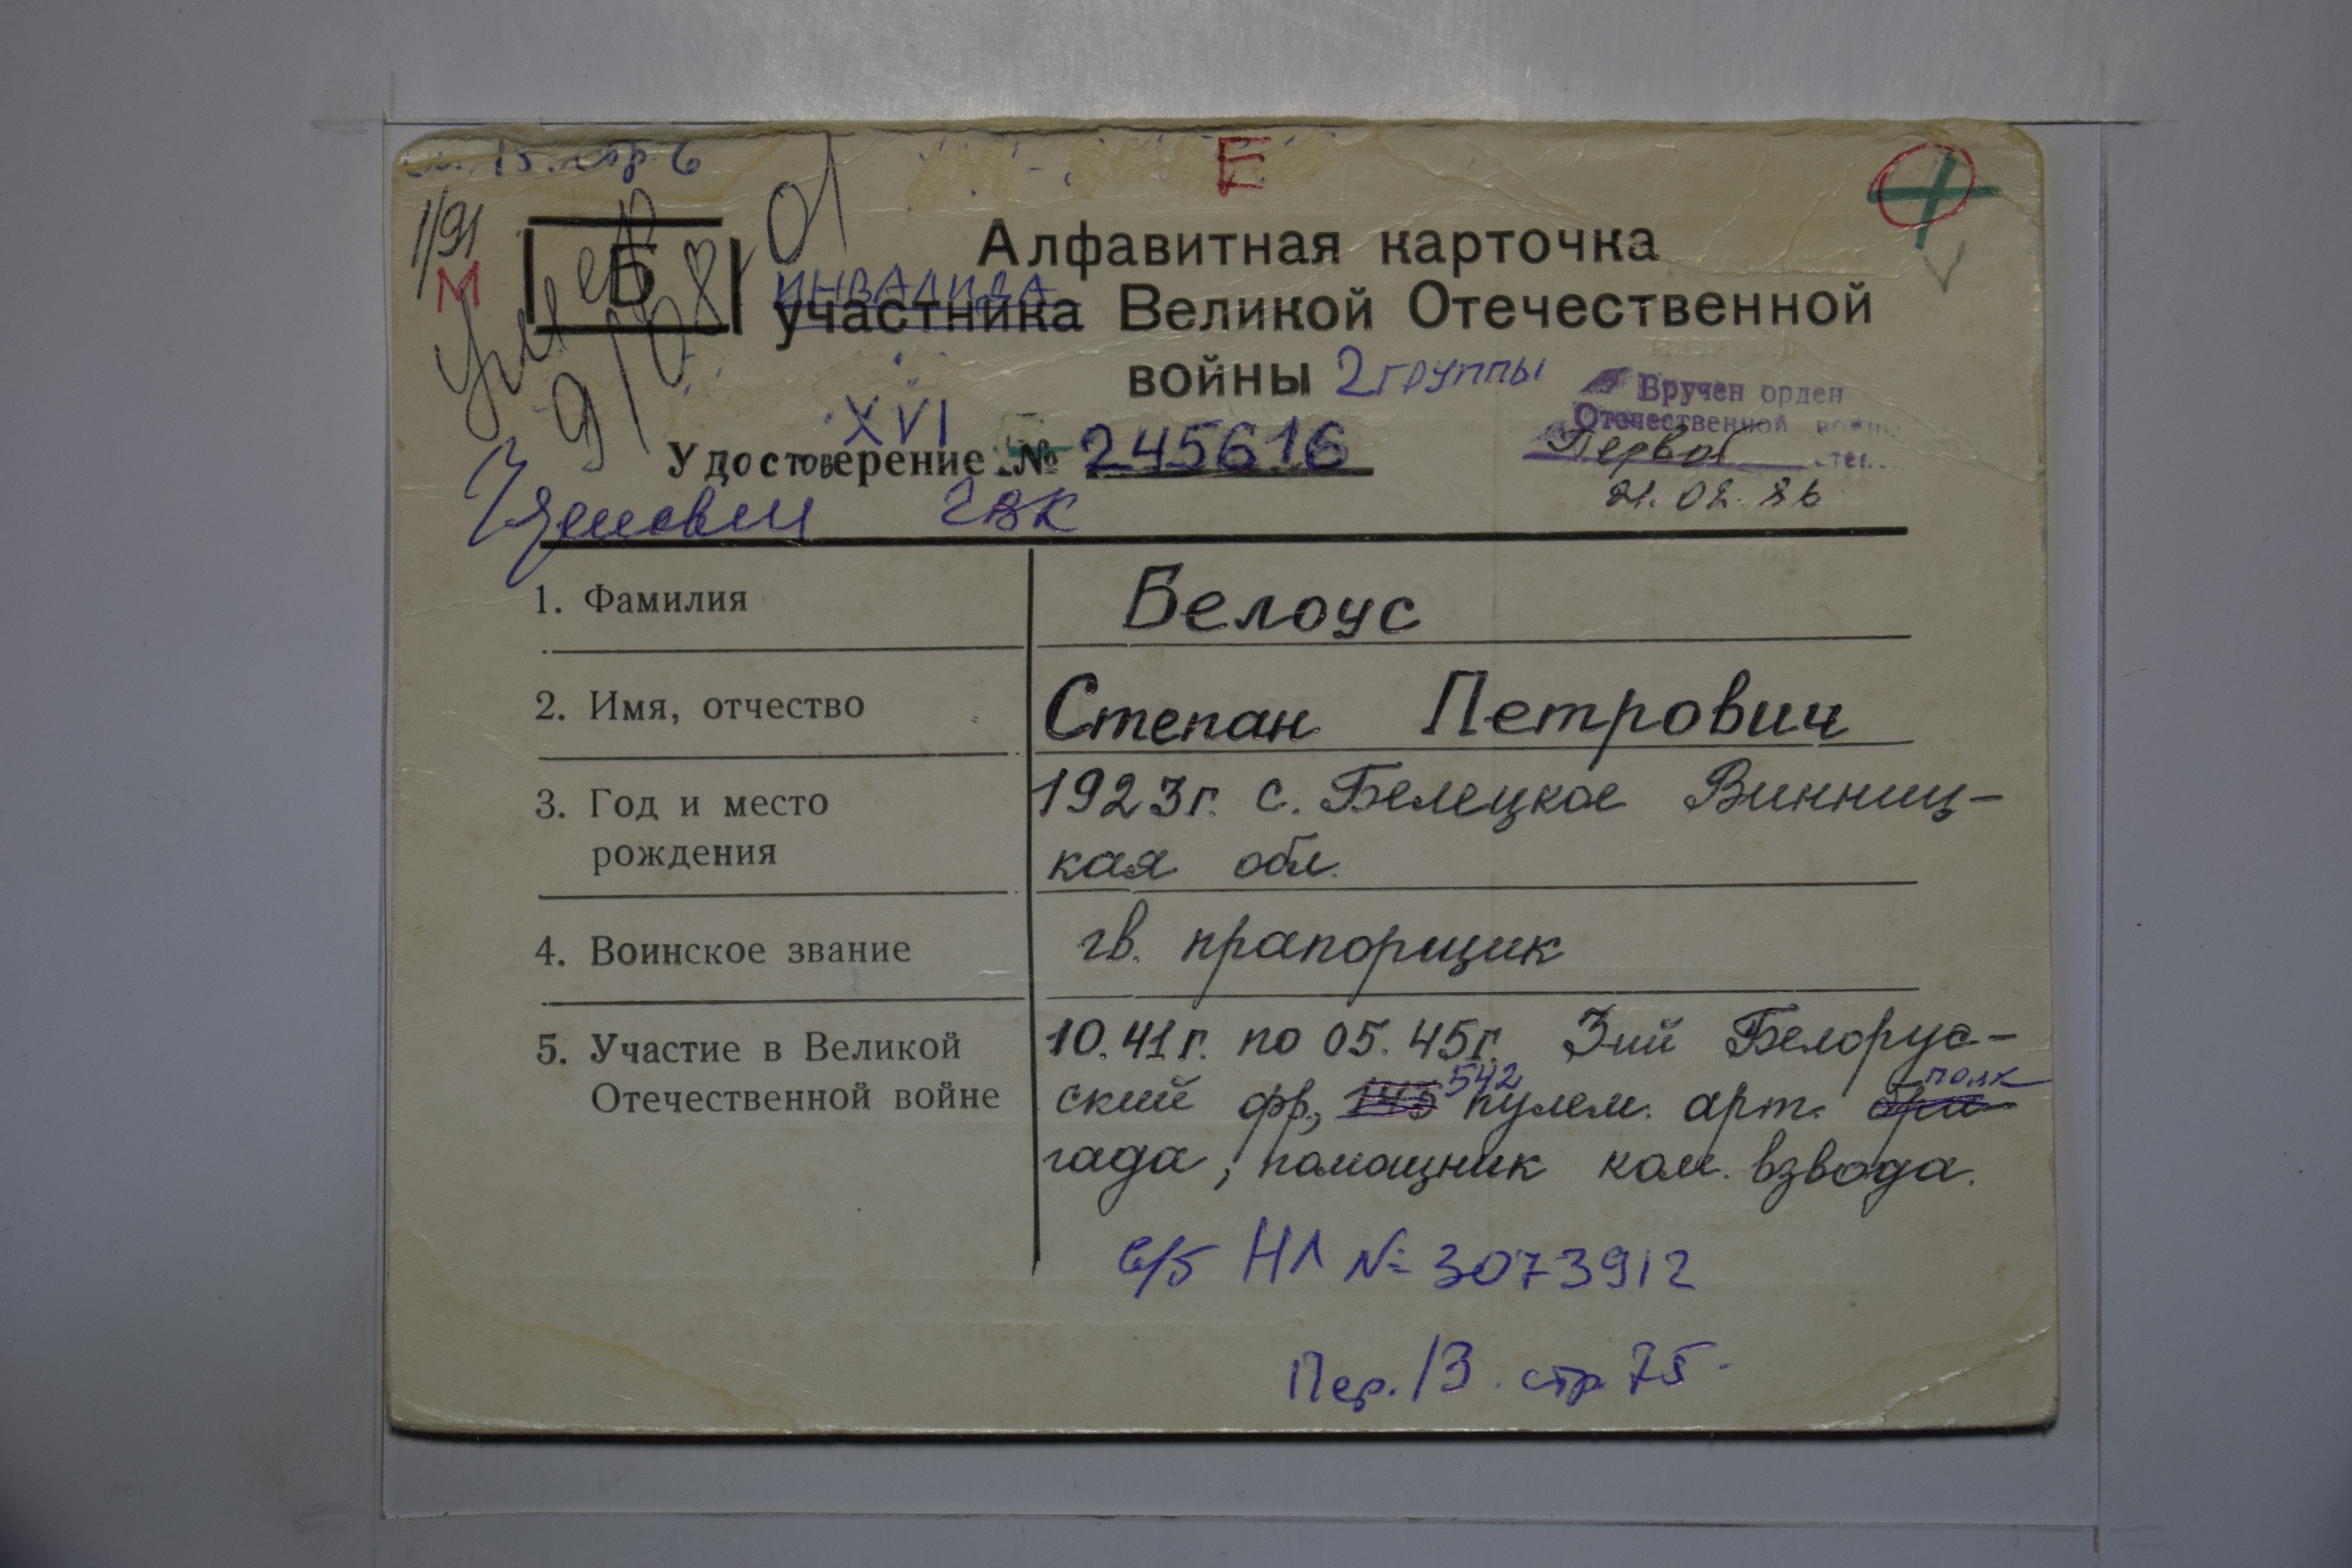 стр. 6
Е
1/91
М
Б
умер 9/08 01
Алфавитная карточка
ИНВАЛИДА
участника Великой Отечественной
войны 2 группы
XVI
Удостоверение № 245616
ГВК
Вручен орден
Отечественной войны
Первой степ.
21.02.86
1. Фамилия
Белоус
2. Имя, отчество
Степан Петрович
3. Год и место
рождения
1923г. с. Белецкое Винниц-
кая обл.
4. Воинское звание
гв. прапорщик
5. Участие в Великой
Отечественной войне
10.41г. по 05.45г. 3-ий Белорус-
ский фр., 145 542 пулем. арт. бри- полк
гада, помощник ком. взвода.
с/б НЛ № 3073912
Пер. 13. стр 75